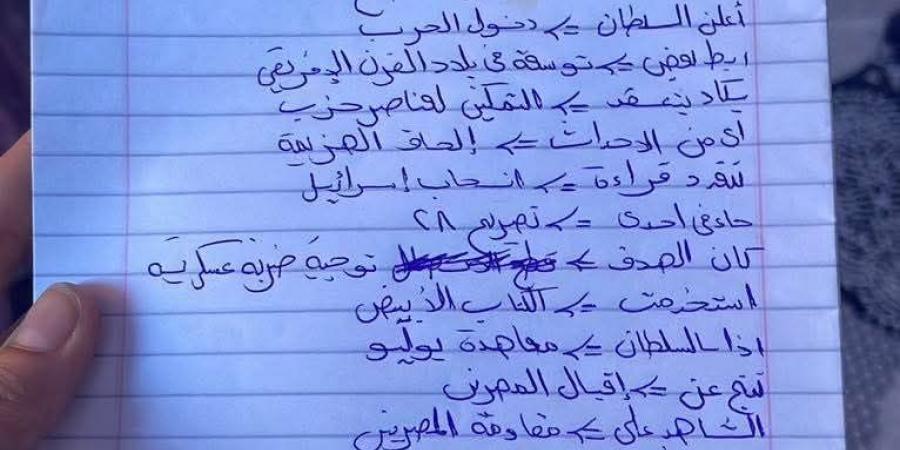 أعلن السلطان => دخول الحرب
اربط بعض => توسعة في بلاد القرن الإفريقي
يكاد ينعقد => التمكين لعناصر حزب
أي من الاحداث => إلحاق الهزيمة
تنفرد قراءة => انسحاب إسرائيل
جاء في احدى => تصريح ٢٨
كان الصدف => توجيه ضربة عسكرية
استخدمت => الكتاب الأبيض
اذا السلطان => معاهدة يوليو
نتج عن => إقبال المصرين
الشاهد على => مقاومة المصريين